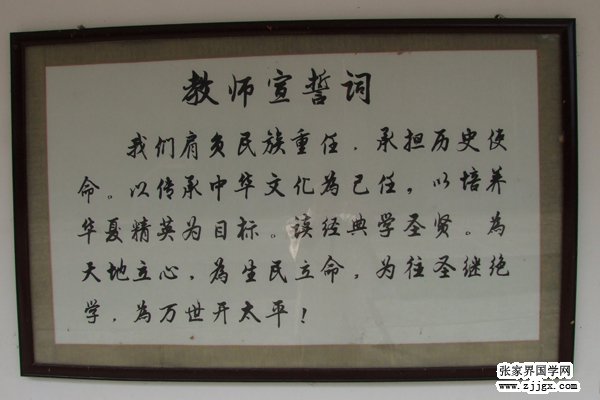 教师宣誓词
我们肩负民族重任，承担历史使
命。以传承中华文化为己任，以培养
华夏精英为目标。读经典学圣贤。为
天地立心，为生民立命，为往圣继绝
学，为万世开太平！
张家界国学网
www.zjjgx.com